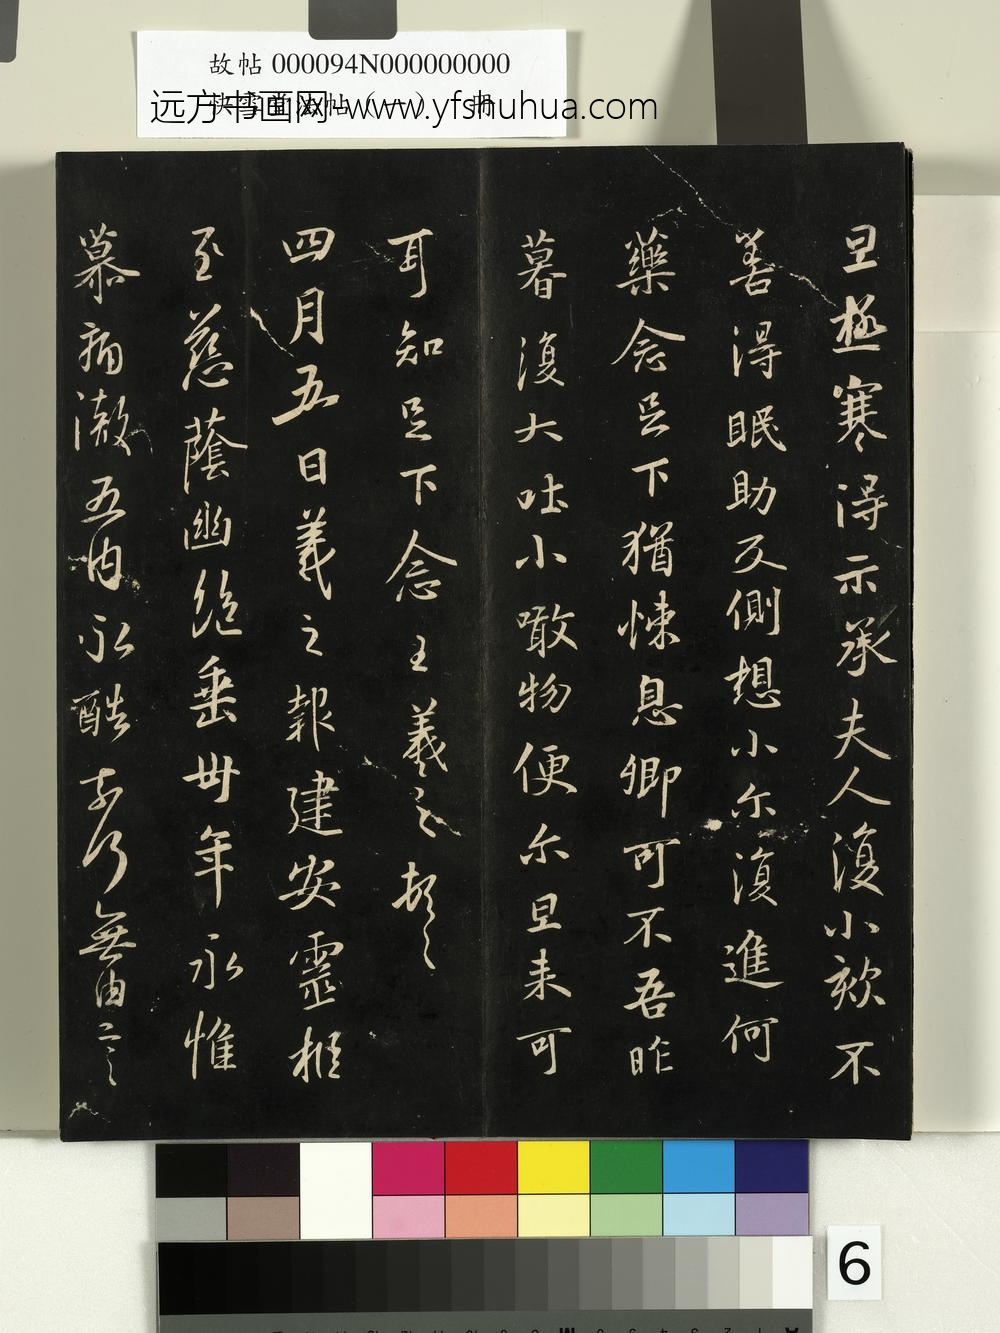 故帖 000094N000000000
快雪堂法帖（一） 册
远方书画网-www.yfshuhua.com
旦極寒得示承夫人復小欬不
善得眠助反側想小尔復進何
藥念足下猶悚息卿可不吾昨
暮復大吐小噉物便尔旦来可
耳知足下念王羲之頓ゝ
四月五日羲之報建安靈柩
至慈蔭幽絕垂卅年永惟
慕痛澈五內永酷奈何無由言
6